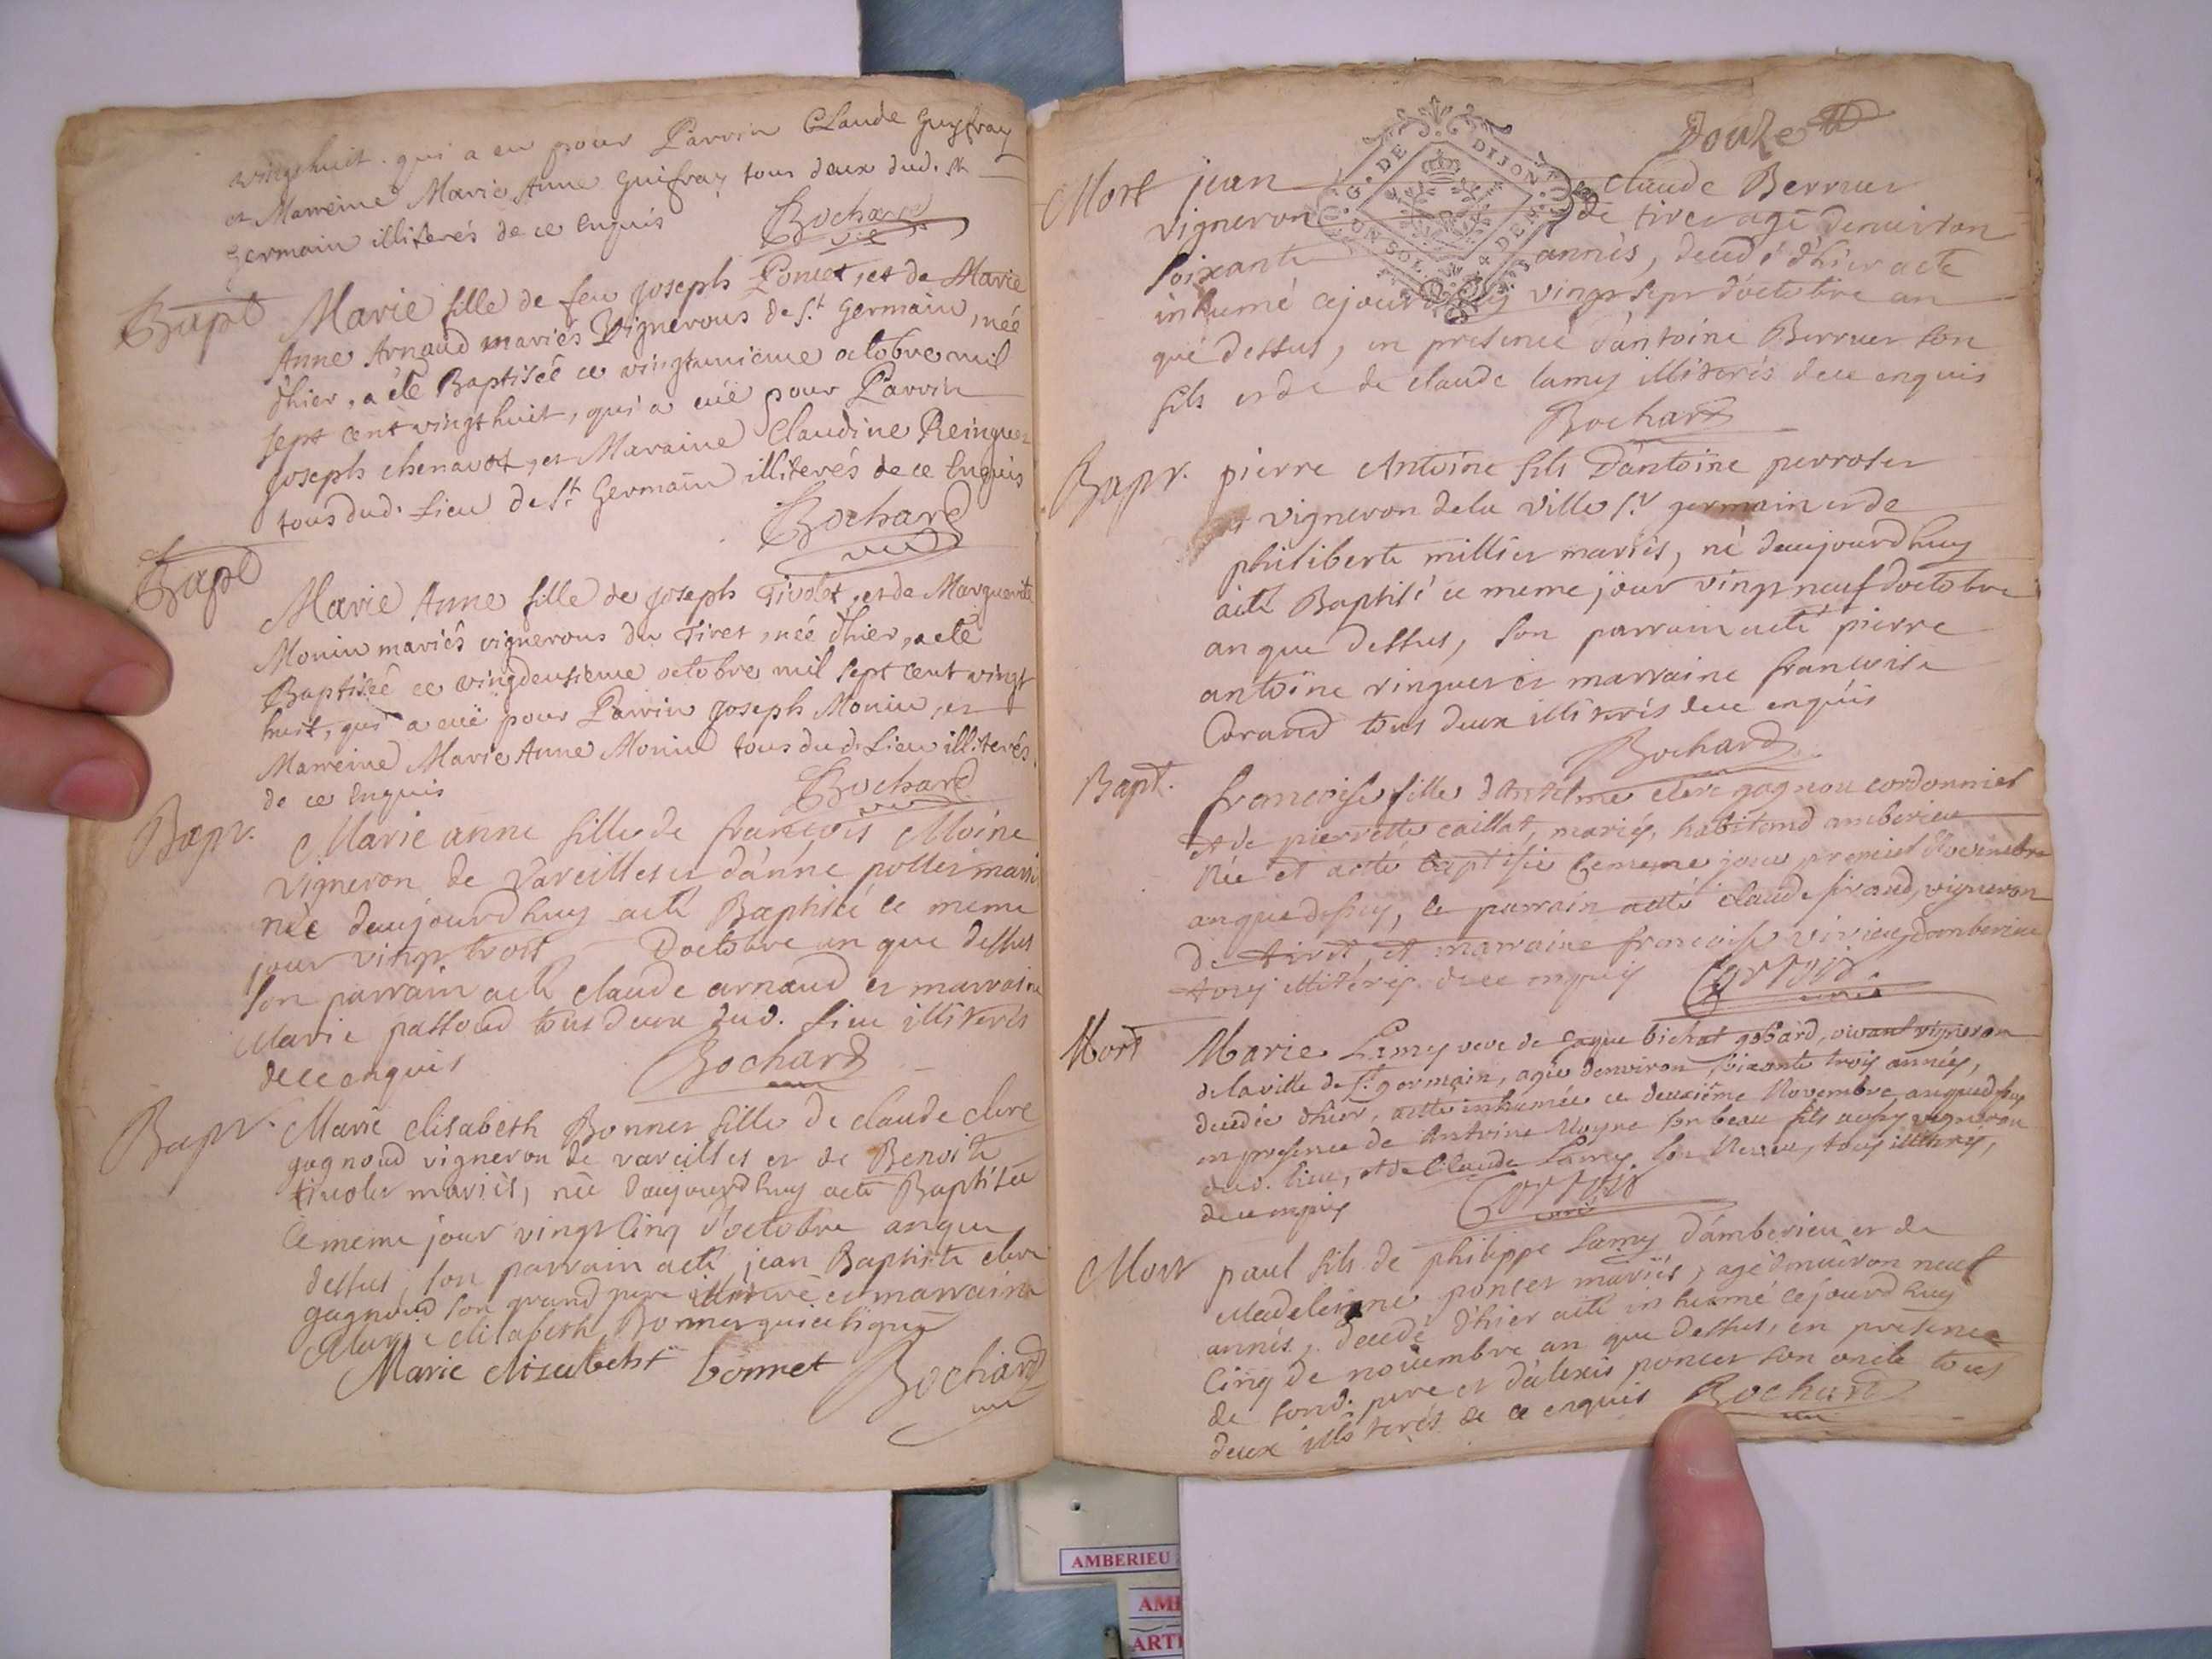 vingt huit. qui a eu pour Parrin Claude Guyfray
et Marreine Marie Anne Guifray tous deux dud. St
Germain illiterés de ce Enquis Bochard
Bapt Marie fille de feu Joseph Poncet, et de Marie
Anne Arnaud mariés Vignerons de St Germain, née
d'hier, a été Baptisée ce vingtunieme octobre mil
sept cent vingt huit, qui a euë pour Parrin
Joseph chenavot, et Maraine Claudine Reinguet
tous dud. Lieu de St Germain illiterés de ce Enquis
Bochard
Bapt
Marie Anne fille de Joseph Tivolet, et de Marguerite
Monin mariés vignerons du Tiret, née d'hier, a eté
Baptisée ce vingdeusieme octobre mil sept cent vingt
huit, qui a euë pour Parrin Joseph Monin, et
Marreine Marie Anne Monin tous dud. Lieu illiterés
de ce Enquis Bochard
Bapt. Marie anne fille de francois Moine
vigneron de Vareilles et d'anne pollet mariés
née daujourdhuy a eté Baptisée ce meme
jour vingt trois D'octobre an que dessus
son parrain a eté claude arnaud et marraine
Marie passoud tous deux dud. lieu illiterés
de ce enquis Bochard
Bapt. Marie elisabeth Bonnet fille de claude clerc
gagnoud vigneron de vareilles et de Benoite
tivolet mariés, née daujourdhuy a eté Baptisée
ce meme jour vingt cinq d'octobre an que
dessus, son parrain a eté jean Baptiste clerc
gagnoud son grand pere illiteré et marraine
Marie elisabeth Bonnet qui a signé
Marie elisabeht bonnet Bochard
Douze
G. DE DIJON
Mort jean claude Berruer
vigneron de tiret agé denviron
soixante annés, decedé d'hier a eté
inhumé cejourdhuy vingt sept d'octobre an
que dessus, en presence d'antoine Berruer son
fils et de claude lamy illiterés de ce enquis
Bochard
Bapt. pierre Antoine fils D'antoine perrotet
vigneron de la ville St germain et de
philiberte millier mariés, né daujourdhuy
a eté Baptisé ce meme jour vingt neuf d'octobre
an que dessus, son parrain a eté pierre
antoine ringuet et marraine francoise
tous deux illiterés de ce enquis
Bochard
Bapt. francoise fille d'antelme clerc gagnou cordonnier
et de pierrette caillat, mariés, habitand amberieu
Née et a eté baptisée ce meme jour premier Novembre
an que dessus, le parrain a eté claude sirand, vigneron
de tiret, et marraine francoise vivieu, d'amberieu
tous illiterés de ce enquis
Mort Marie Lamy veve de bichat gobard, vivant vigneron
de la ville de St germain, agée denviron soixante trois années,
decedée d'hier, a eté inhumée ce deuxiéme Novembre an que dessus
en presence de Antoine Moyne son beau fils aussy vigneron
dud. lieu, et de Claude Lamy son Neveu, tous illiterés,
de ce enquis
Mort paul fils de philippe Lamy d'amberieu et de
Madeleine poncet mariés, agé denviron neuf
annés, decedé d'hier a eté inhumé cejourdhuy
cinq de novembre an que dessus, en presence
de sond. pere et d'alexis poncet son oncle tous
deux illiterés de ce enquis Bochard
AMBERIEU